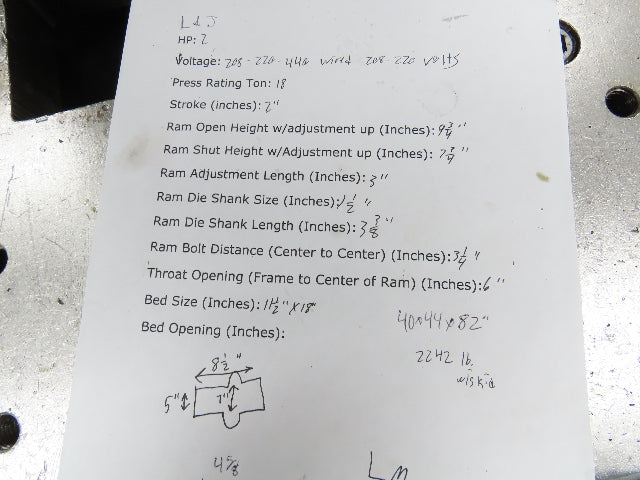 L & J
HP: 2
Voltage: 208 - 220 - 440 wired 208-220 volts
Press Rating Ton: 18
Stroke (inches): 2"
Ram Open Height w/adjustment up (Inches): 9 3/4"
Ram Shut Height w/Adjustment up (Inches): 7 3/4"
Ram Adjustment Length (Inches): 3"
Ram Die Shank Size (Inches): 1 1/2"
Ram Die Shank Length (Inches): 3 3/8"
Ram Bolt Distance (Center to Center) (Inches): 3 1/4"
Throat Opening (Frame to Center of Ram) (Inches): 6"
Bed Size (Inches): 11 1/2" x 18"
40x44x82"
Bed Opening (Inches):
2242 lb.
w/skid
8 1/2"
5"
7"
4 5/8